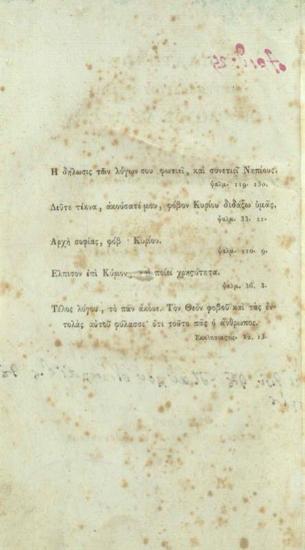 Η δήλωσις τῶν λόγων σου φωτιεῖ, καὶ συνετιεῖ Νηπίους.
ψαλμ. 119. 130.
Δεῦτε τέκνα, ἀκούσατέ μου, φόβον Κυρίου διδάξω ὑμᾶς.
ψαλμ. 33. 11.
Αρχὴ σοφίας, φόβ Κυρίου.
ψαλμ. 110. 9.
Ελπισον ἐπὶ Κύριον, καὶ ποίει χρηςότητα.
ψαλμ. 36. 3.
Τέλος λόγου, τὸ πᾶν ἄκουε. Τὸν Θεὸν φοβοῦ καὶ τὰς ἐν-
τολὰς αὐτοῦ φύλασσε· ὅτι τοῦτο πᾶς ὁ ἄνθρωπος.
Εκκλησιαςὴς 12. 13.